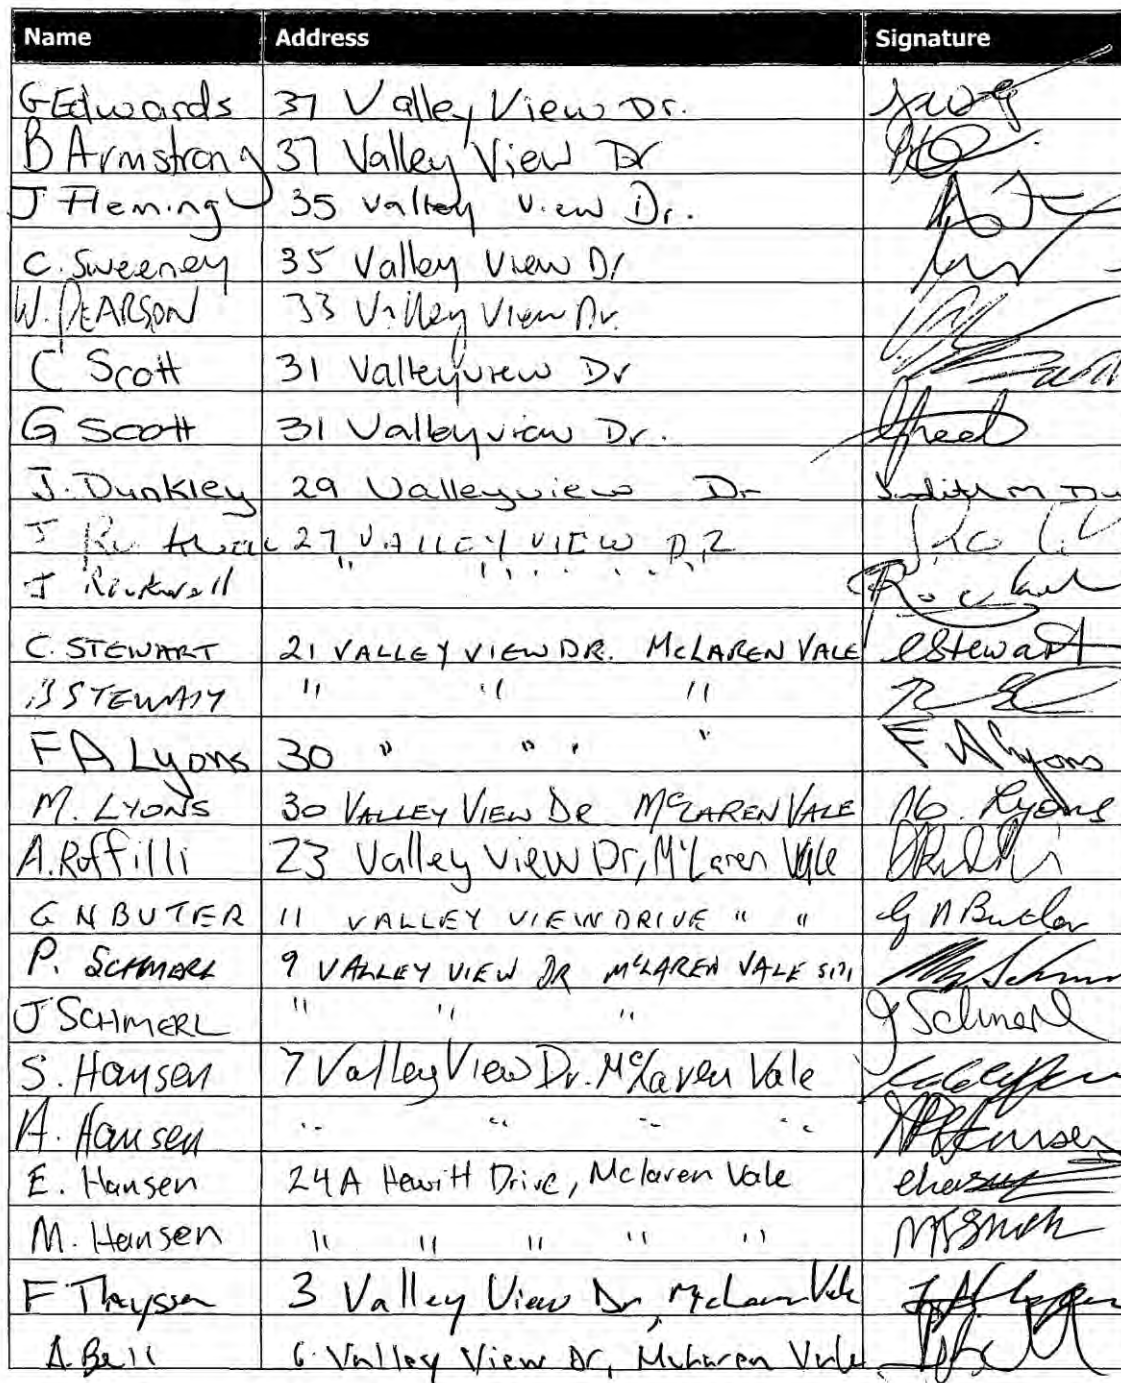 Name Address Signature
G Edwards 37 Valley View Dr.
B Armstrong 37 Valley View Dr
J Fleming 35 Valley View Dr.
C. Sweeney 35 Valley View Dr
W. PEARSON 33 Valley View Dr.
C Scott 31 Valleyview Dr
G Scott 31 Valleyview Dr.
J. Dunkley 29 Valleyview Dr Judith M Du
J 27 VALLEY VIEW DR
J Rockwell " " " "
C. STEWART 21 VALLEY VIEW DR. McLAREN VALE C Stewart
B STEWART " " "
F A Lyons 30 " " " " F A Lyons
M. LYONS 30 VALLEY VIEW DR McLAREN VALE M. Lyons
A. Roffilli 23 Valley View Dr, McLaren Vale
G N BUTLER 11 VALLEY VIEW DRIVE " " G N Butler
P. SCHMERL 9 VALLEY VIEW DR McLAREN VALE
J SCHMERL " " " J Schmerl
S. Hansen 7 Valley View Dr. McLaren Vale
A. Hansen " " " " Hansen
E. Hansen 24A Hewitt Drive, Mclaren Vale
M. Hansen " " " " "
F Thayssen 3 Valley View Dr, McLaren Vale
A. Bell 6 Valley View Dr, McLaren Vale